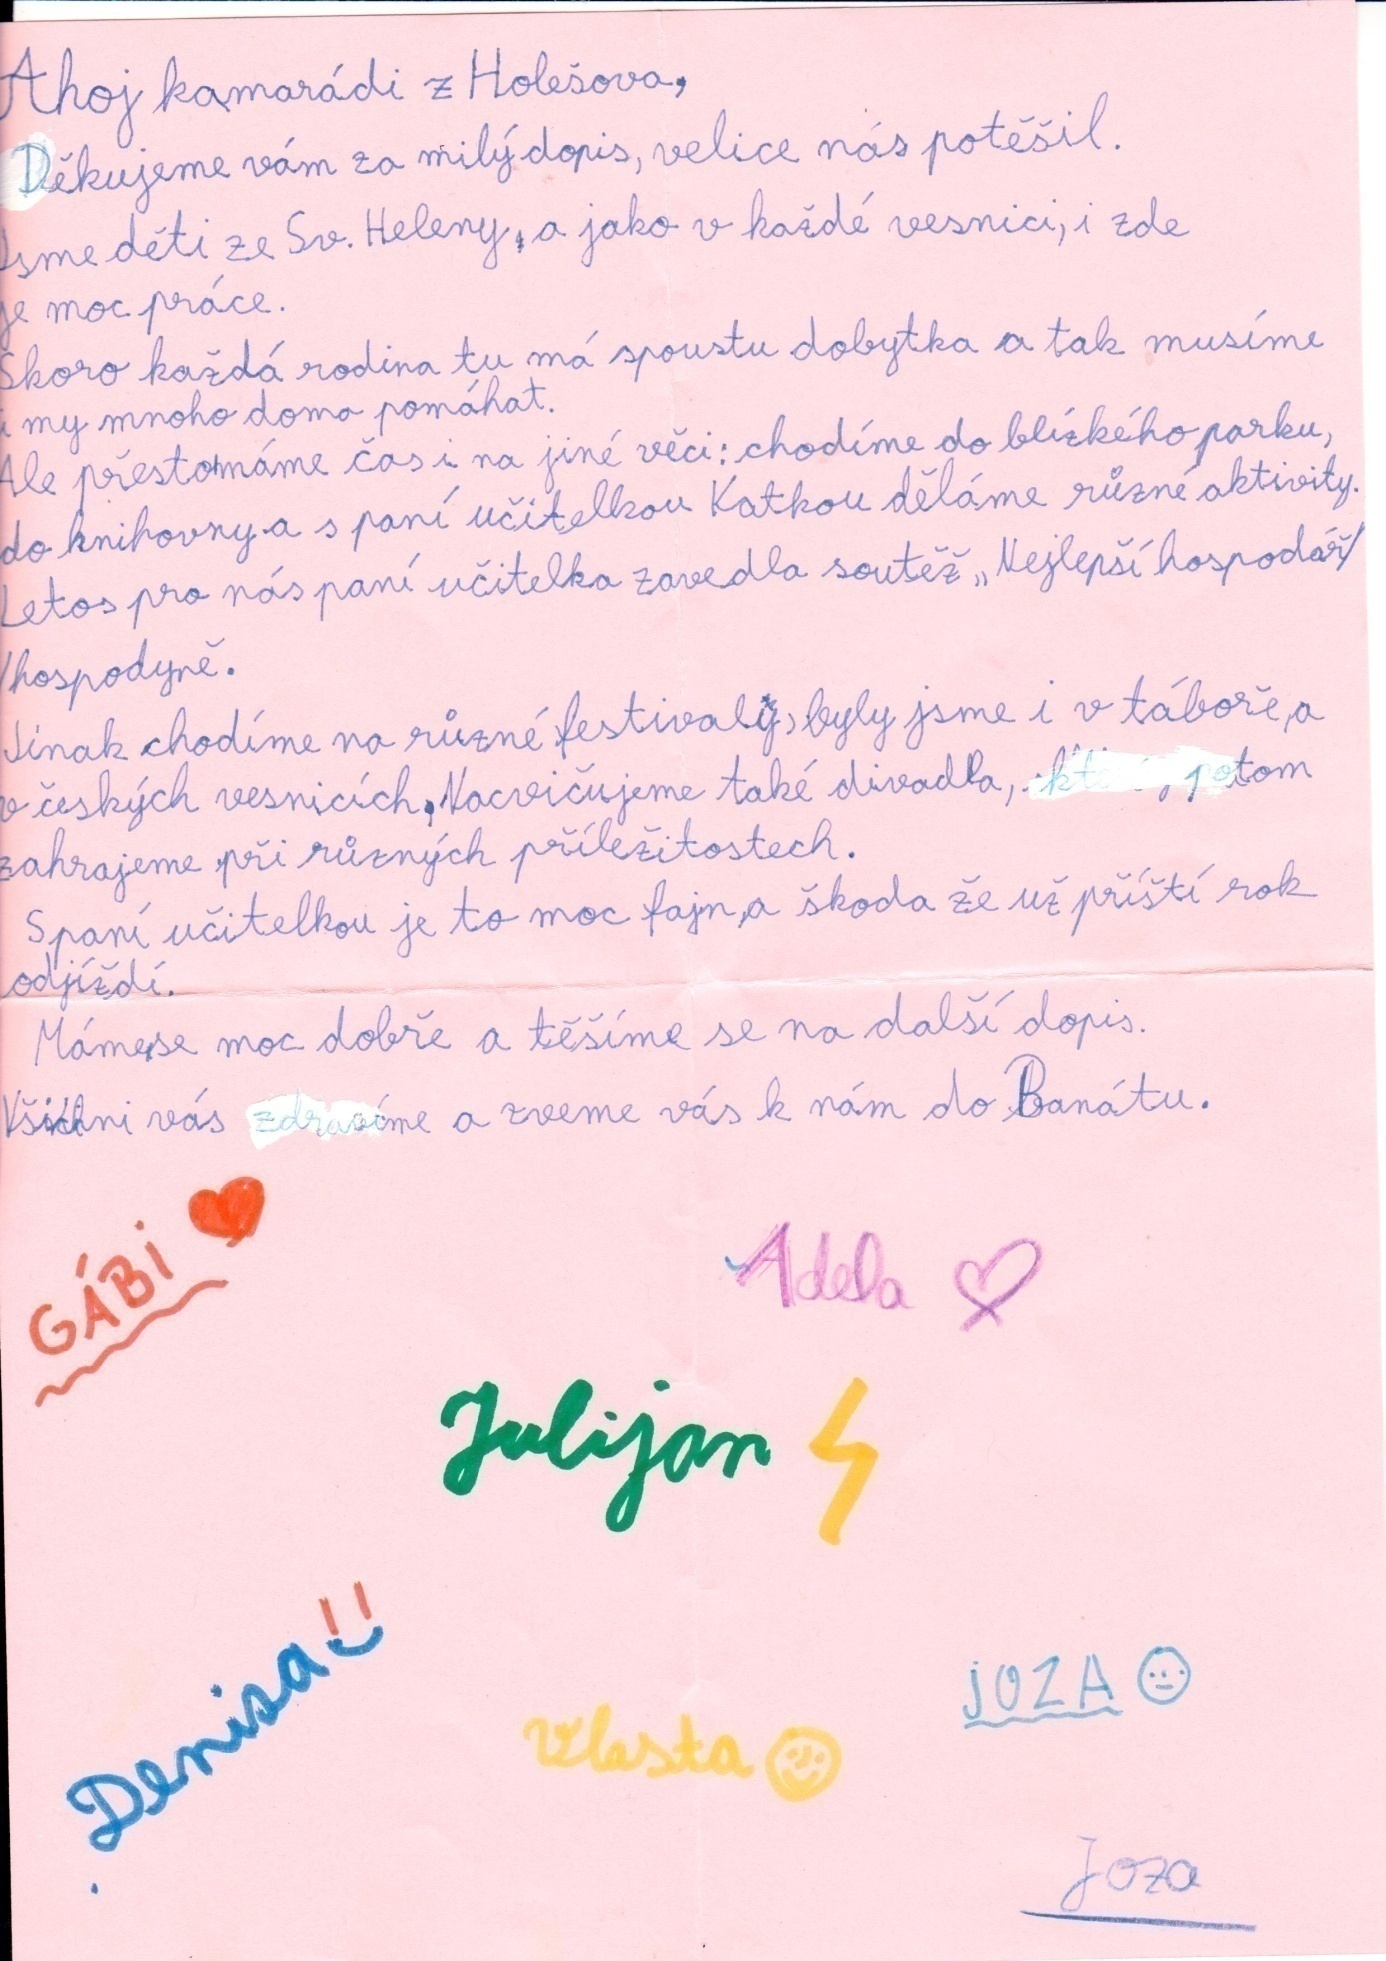 Ahoj kamarádi z Holešova,
Děkujeme vám za milý dopis, velice nás potěšil.
Jsme děti ze Sv. Heleny, a jako v každé vesnici, i zde
je moc práce.
Skoro každá rodina tu má spoustu dobytka a tak musíme
i my mnoho doma pomáhat.
Ale přesto máme čas i na jiné věci: chodíme do blízkého parku,
do knihovny a s paní učitelkou Katkou děláme různé aktivity.
Letos pro nás paní učitelka zavedla soutěž „Nejlepší hospodář/
/hospodyně.
Jinak chodíme na různé festivaly, byly jsme i v táboře, a
v českých vesnicích. Nacvičujeme také divadla, potom
zahrajeme při různých příležitostech.
S paní učitelkou je to moc fajn, a škoda že už příští rok
odjíždí.
Máme se moc dobře a těšíme se na další dopis.
Všichni vás zdravíme a zveme vás k nám do Banátu.
GÁBi
Adela
Julijan
Denisa
jOZA
Vlasta
Joza